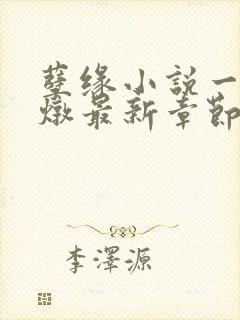 孽缘小説一
燉最新章節
李澤源